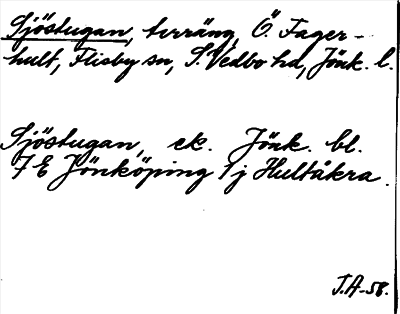 Sjöstugan, terräng, Ö. Fager-
hult, Flisby sn, S. Vedbo hd, Jönk. l.
Sjöstugan, ek. Jönk. bl.
7 E Jönköping 1 j Hultåkra.
J.A-58.